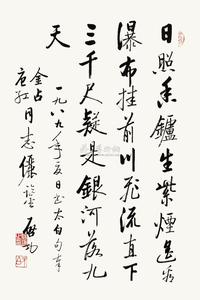 日照香鑪生紫煙遥看
瀑布挂前川飛流直下
三千尺疑是銀河落九
天
一九八九年夏日書太白句奉
金占
同志儷鑒
啟功